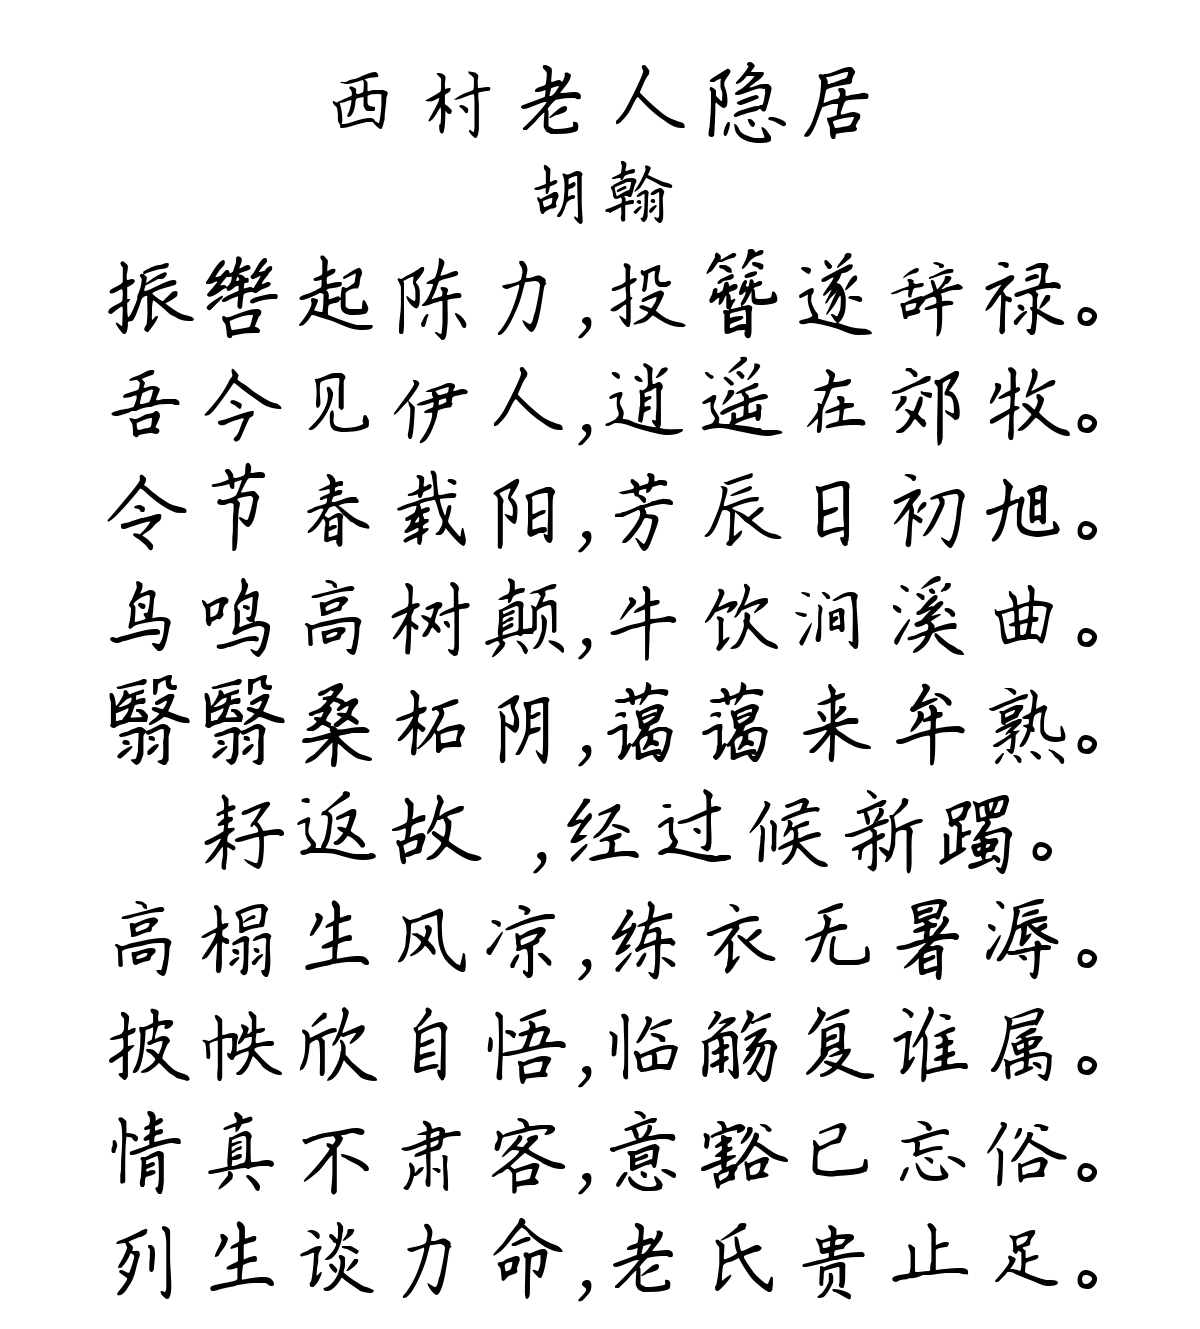 西村老人隐居
胡翰
振辔起陈力,投簪遂辞禄。
吾今见伊人,逍遥在郊牧。
令节春载阳,芳辰日初旭。
鸟鸣高树颠,牛饮涧溪曲。
翳翳桑柘阴,蔼蔼来牟熟。
耔返故 ,经过候新躅。
高榻生风凉,练衣无暑溽。
披帙欣自悟,临觞复谁属。
情真不肃客,意豁已忘俗。
列生谈力命,老氏贵止足。